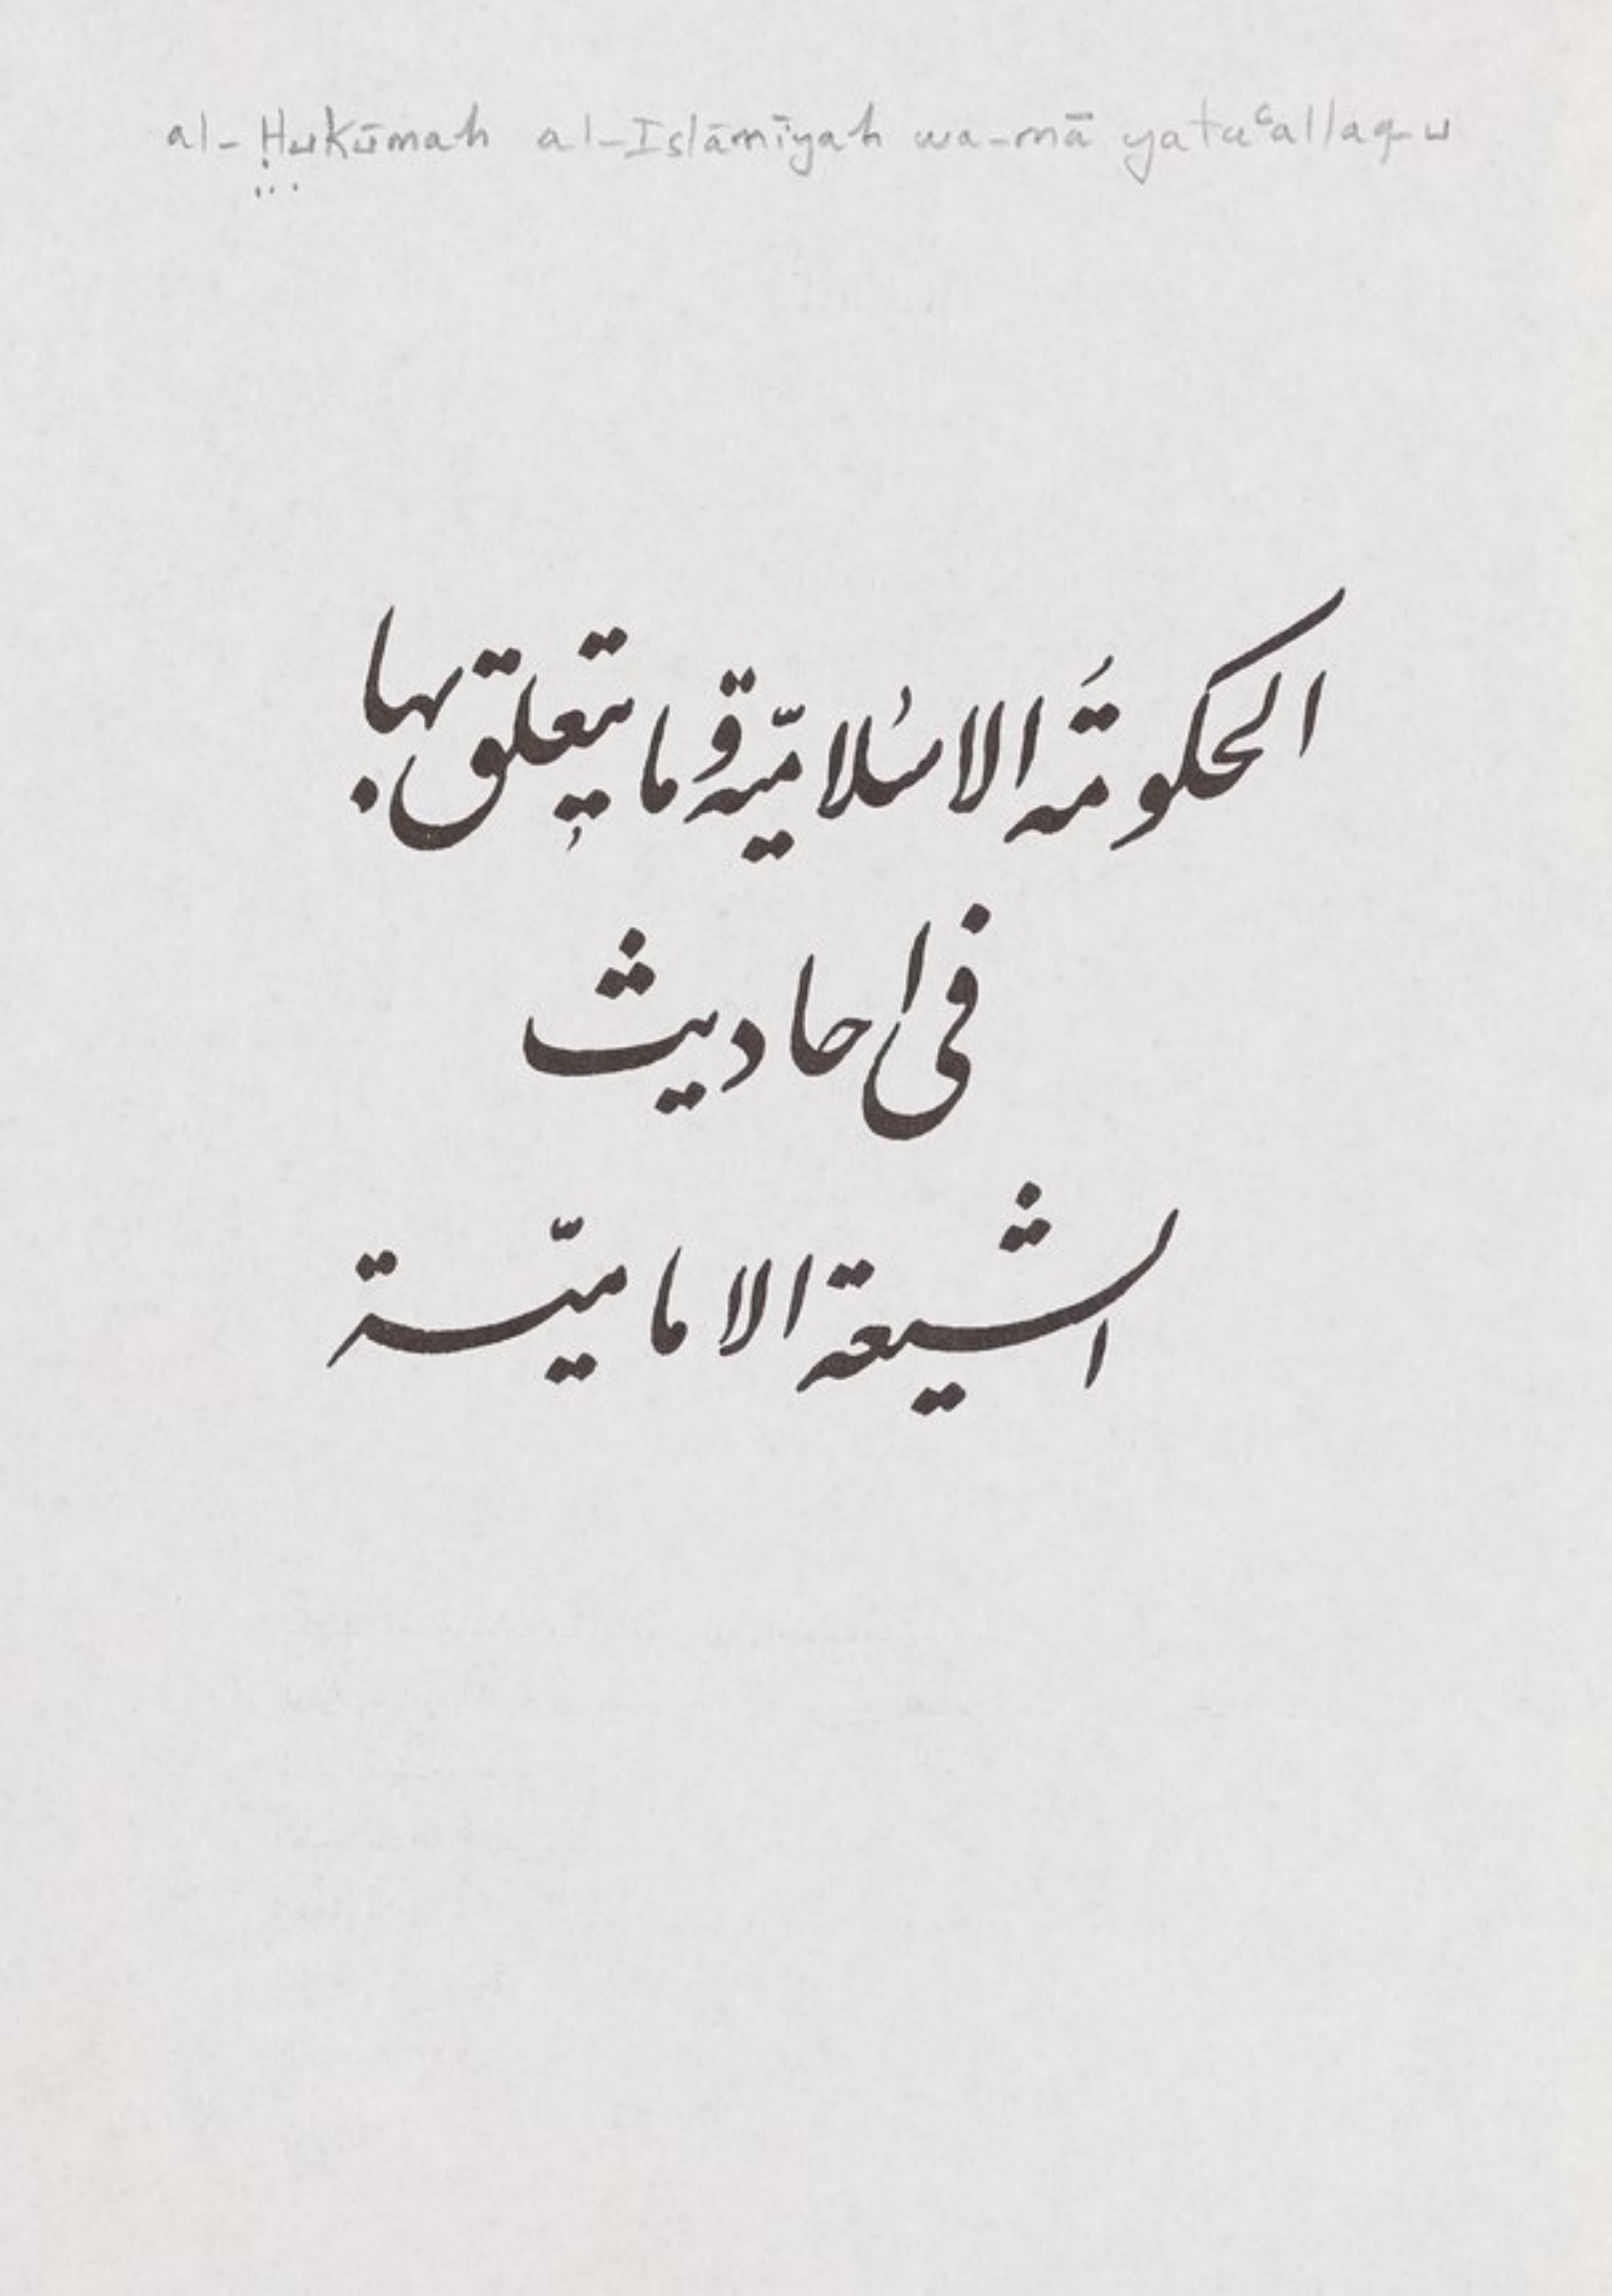 al-Ḥukūmah al-Islāmīyah wa-mā yataʿallaq-u
الحكومَة الاسلاميّة وما يتعلق بها
فى احاديث
الشيعة الاماميّة